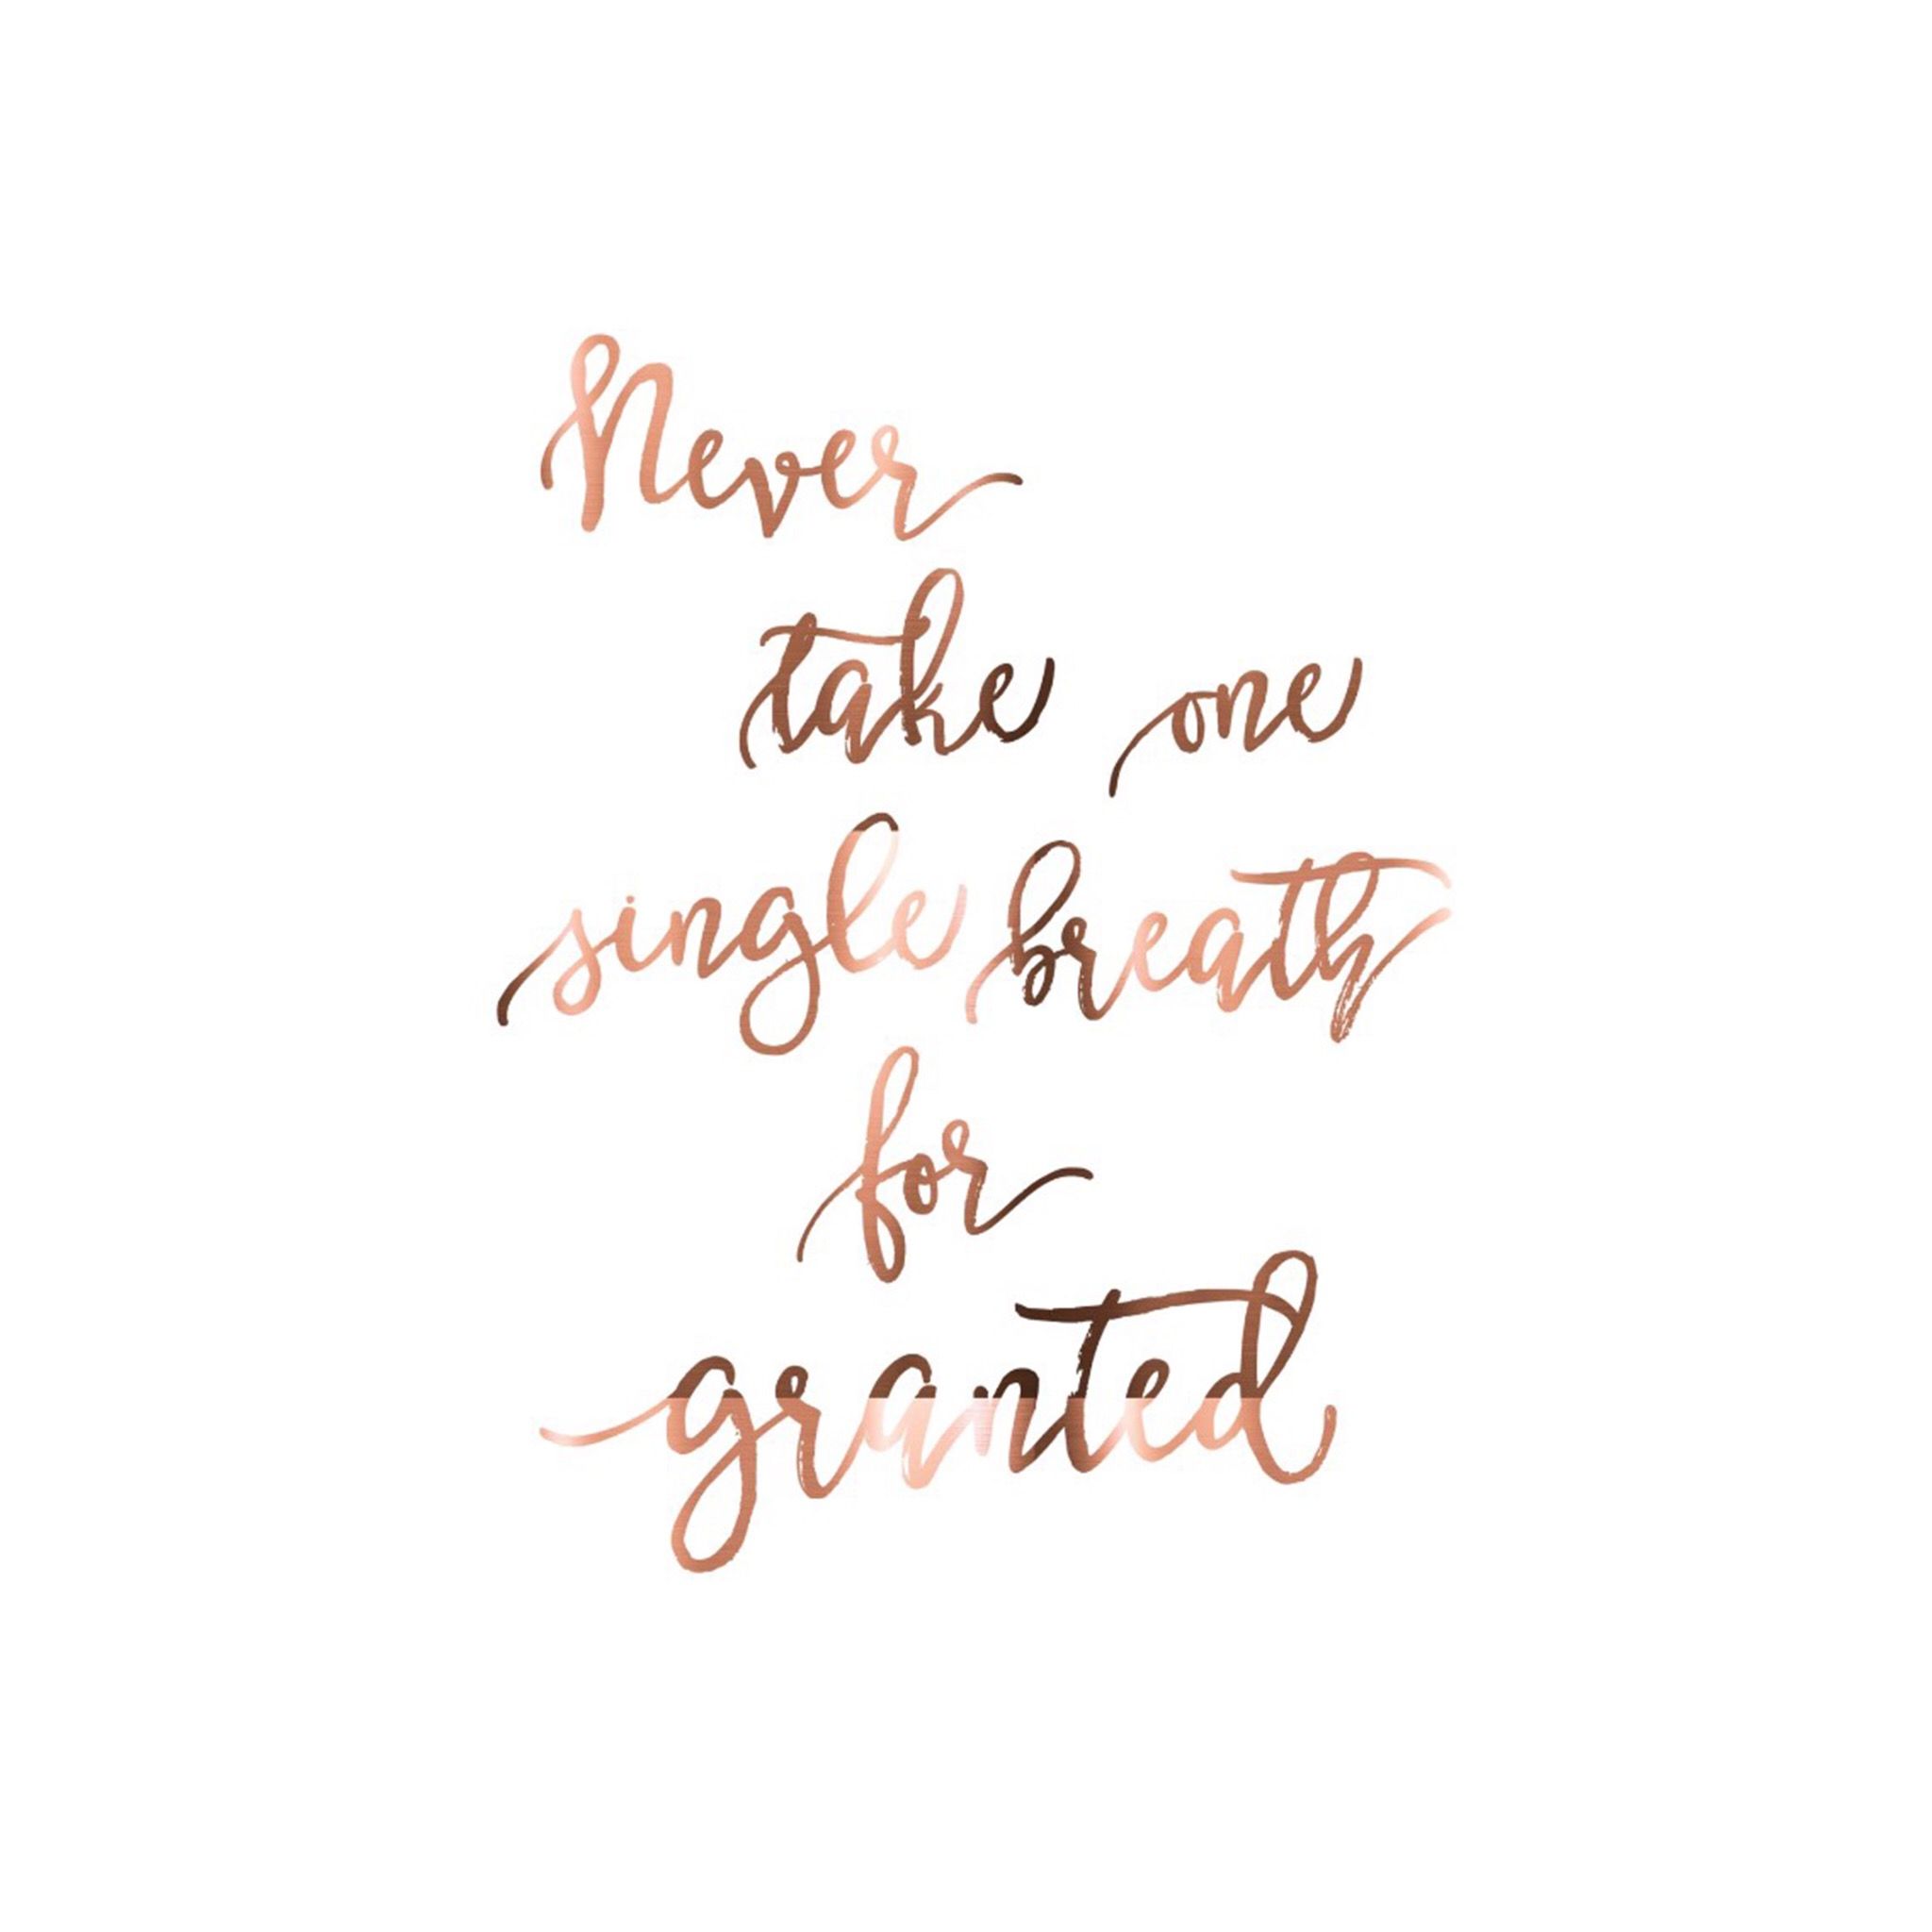 Never
take one
single breath
for
granted